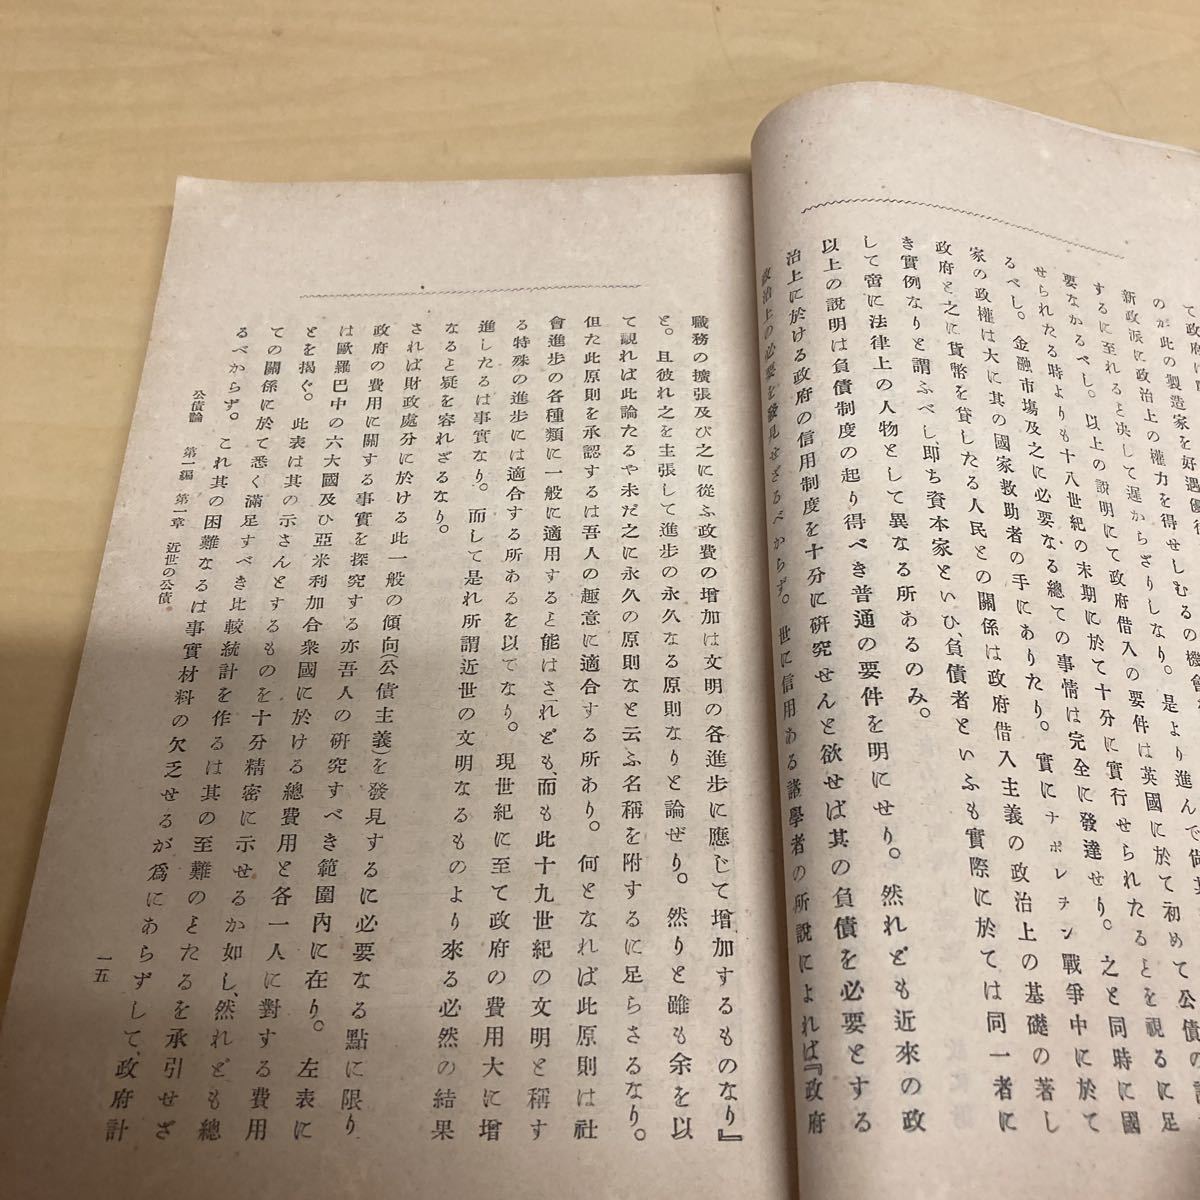 て政府に
のが此の製造家を好遇優待
新政派に政治上の權力を得せしむるの機會
するに至れると決して遲からざりしなり。是より進んで
要なかるべし。以上の説明にて政府借入の要件は英國に於て初めて公債の
せられたる時よりも十八世紀の末期に於て十分に實行せられたるヿを視るに足
るべし。金融市塲及之に必要なる總ての事情は完全に發達せり。之と同時に國
家の政權は大に其の國家救助者の手にありたり。實にナポレヲン戰爭中に於て
政府と之に貨幣を貸したる人民との關係は政府借入主義の政治上の基礎の著し
き實例なりと謂ふべし、即ち資本家といひ、負債者といふも實際に於ては同一者に
して啻に法律上の人物として異なる所あるのみ。
以上の説明は負債制度の起り得べき普通の要件を明にせり。然れども近來の政
治上に於ける政府の信用制度を十分に研究せんと欲せば其の負債を必要とする
政治上の必要を發見せざるべからず。世に信用ある諸學者の所説によれば『政府
職務の擴張及び之に從ふ政費の增加は文明の各進步に應じて增加するものなり』
と。且彼れ之を主張して進步の永久なる原則なりと論ぜり。然りと雖も余を以
て觀れば此論たるや未だ之に永久の原則なと云ふ名稱を附するに足らさるなり。
但た此原則を承認するは吾人の趣意に適合する所あり。何となれば此原則は社
會進步の各種類に一般に適用すると能はされども、而も此十九世紀の文明と稱す
る特殊の進步には適合する所あるを以てなり。現世紀に至て政府の費用大に增
進したるは事實なり。而して是れ所謂近世の文明なるものより來る必然の結果
なると疑を容れざるなり。
されば財政處分に於ける此一般の傾向(公債主義)を發見するに必要なる點に限り
政府の費用に關する事實を探究する亦吾人の研究すべき範圍內に在り。左表に
は歐羅巴中の六大國及ひ亞米利加合衆國に於ける總費用と各一人に對する費用
とを揭ぐ。此表は其の示さんとするものを十分精密に示せるか如し、然れども總
ての關係に於て悉く滿足すべき比較統計を作るは其の至難のとたるを承引せざ
るべからず。これ其の困難なるは事實材料の欠乏せるが爲にあらずして、政府計
公債論　第一編　第一章　近世の公債
一五